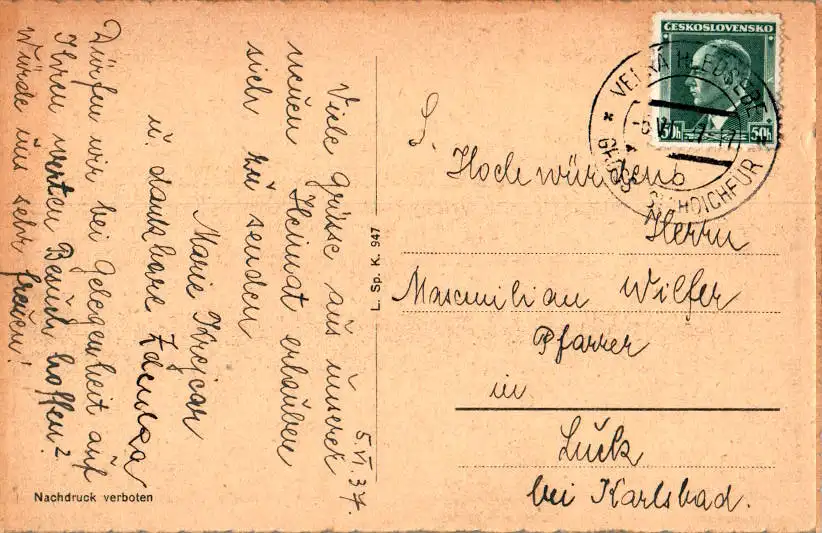 Viele Grüsse aus unserer
neuen Heimat erlauben
sich zu senden
Marie Krejcar
u. dankbare Zdenka
Dürfen wir bei Gelegenheit auf
Ihren werten Besuch hoffen?
Würde uns sehr freuen!
5.VI.37.
Nachdruck verboten
L. Sp. K. 947
ČESKOSLOVENSKO
50h 50h
VELKÁ HLEĎSEBE
S. Hochwürdens
Herrn
Maxmilian Wilfer
Pfarrer
in
Luck
bei Karlsbad.